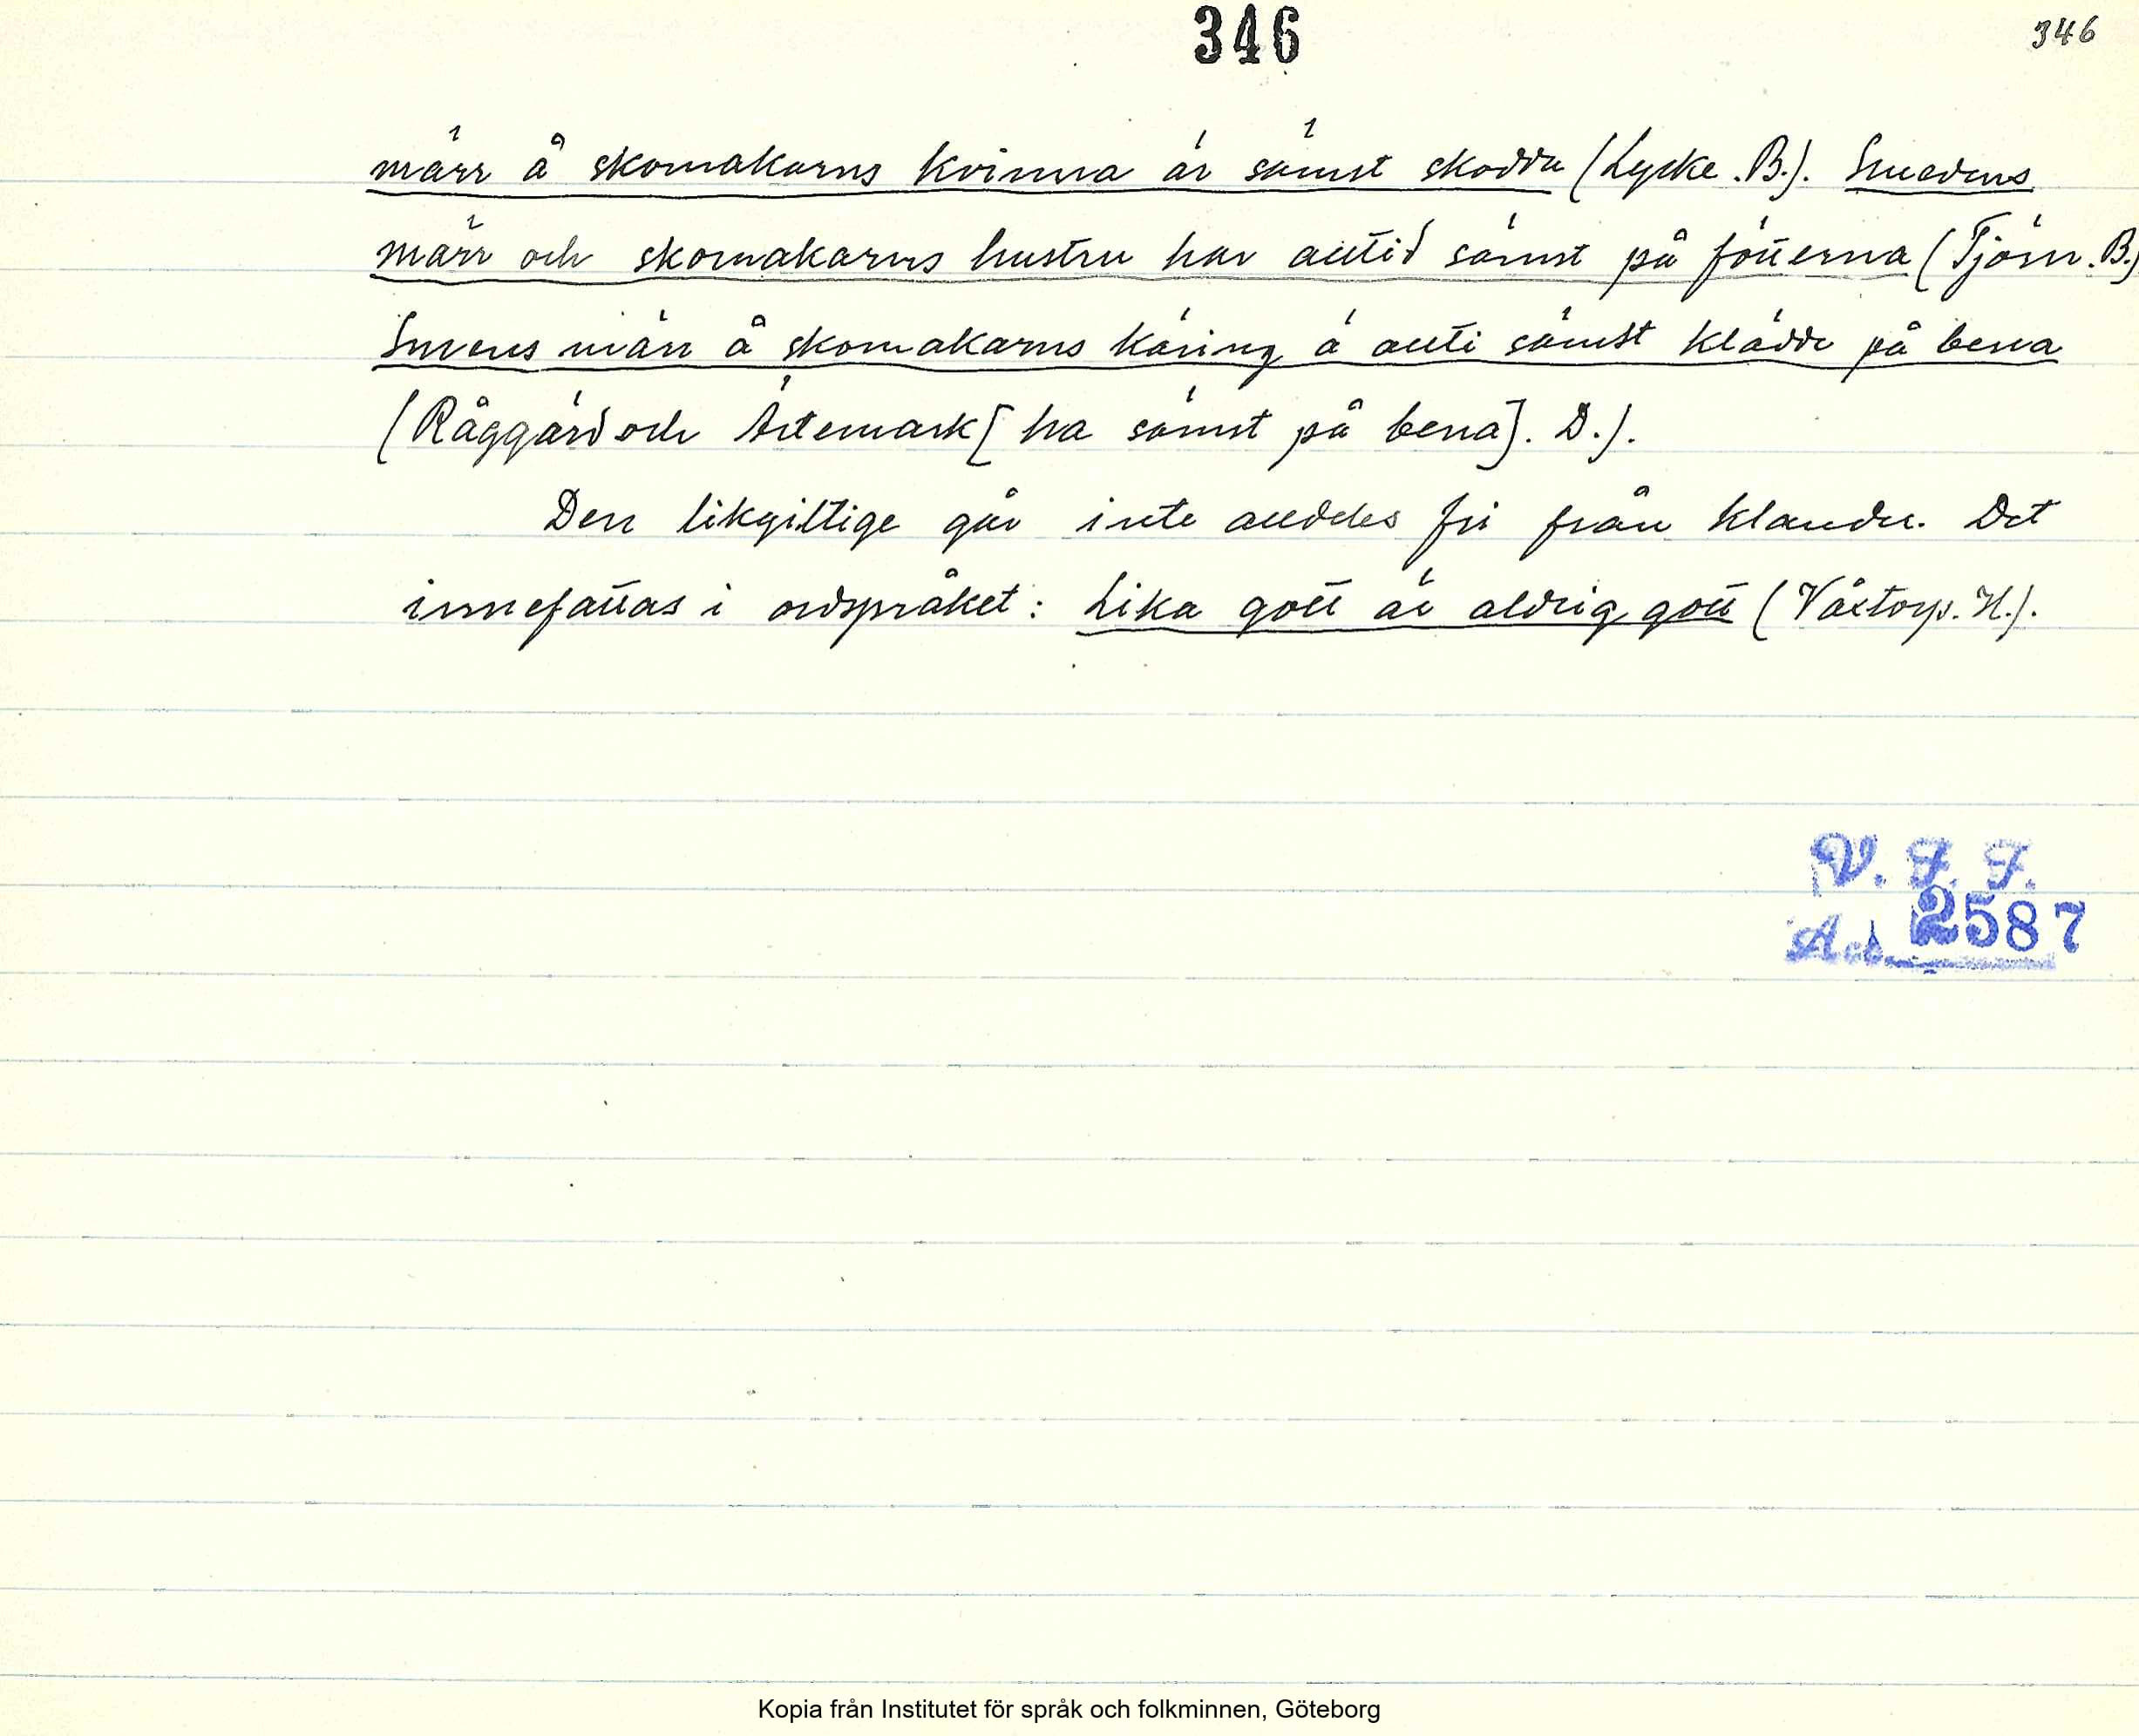 346
346
märr å skomakarns kvinna är sämst skodda (Lycke. B.). Smedens
märr och skomakarns hustru har alltid sämst på fötterna (Tjörn. B.)
Smens märr å skomakarns käring ä allti sämst klädde på bena
(Råggärd och Ärtemark [ha sämst på bena]. D.).
Den likgiltige går inte alldeles fri från klander. Det
innefattas i ordspråket: Lika gott är aldrig gott (Våxtorp. H.).
V. F. F.
Acc. 2587
Kopia från Institutet för språk och folkminnen, Göteborg